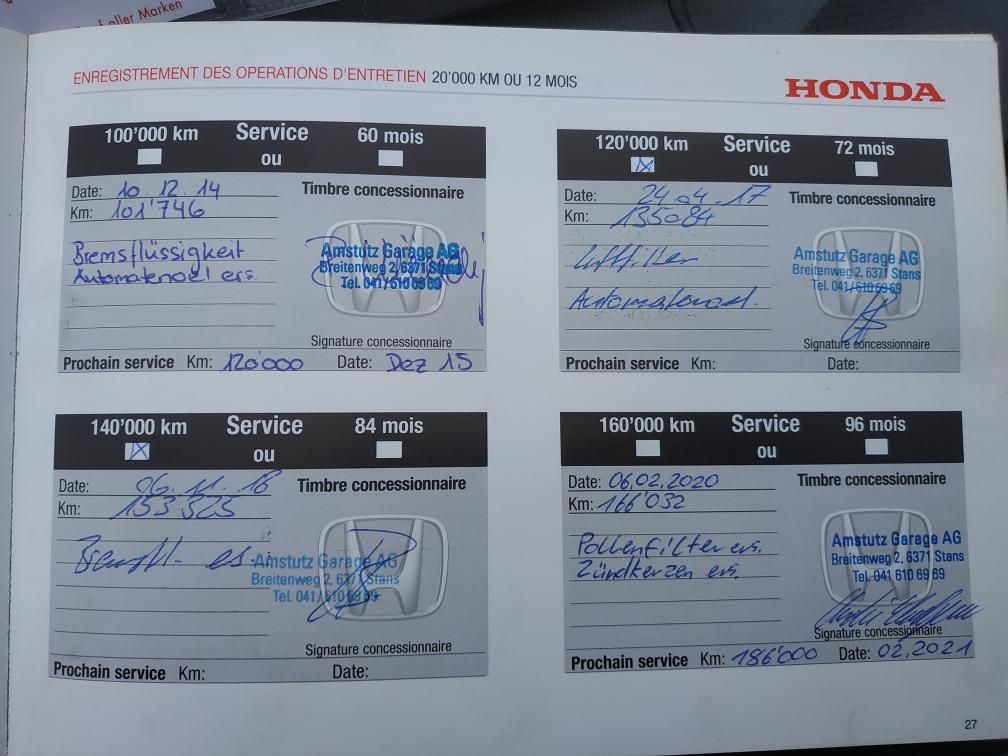 aller Marken
ENREGISTREMENT DES OPERATIONS D'ENTRETIEN 20'000 KM OU 12 MOIS
HONDA
100'000 km Service 60 mois
ou
Date: 10.12.14 Timbre concessionnaire
Km: 101'746
Bremsflüssigkeit
Automatenoel ers.
Amstutz Garage AG
Breitenweg 2, 6371 Stans
Tel. 041/610 69 69
Signature concessionnaire
Prochain service Km: 120'000 Date: Dez 15
120'000 km Service 72 mois
ou
Date: 24.04.17 Timbre concessionnaire
Km: 135084
Luftfilter
Automatenoel.
Amstutz Garage AG
Breitenweg 2, 6371 Stans
Tel. 041/610 69 69
Signature concessionnaire
Prochain service Km: Date:
140'000 km Service 84 mois
ou
Date: 06.11.18 Timbre concessionnaire
Km: 153 325
Bremsfl. ers.
Amstutz Garage AG
Breitenweg 2, 6371 Stans
Tel. 041/610 69 69
Signature concessionnaire
Prochain service Km: Date:
160'000 km Service 96 mois
ou
Date: 06,02,2020 Timbre concessionnaire
Km: 166'032
Pollenfilter ers.
Zündkerzen ers.
Amstutz Garage AG
Breitenweg 2, 6371 Stans
Tel. 041 610 69 69
Signature concessionnaire
Prochain service Km: 186'000 Date: 02,2021
27